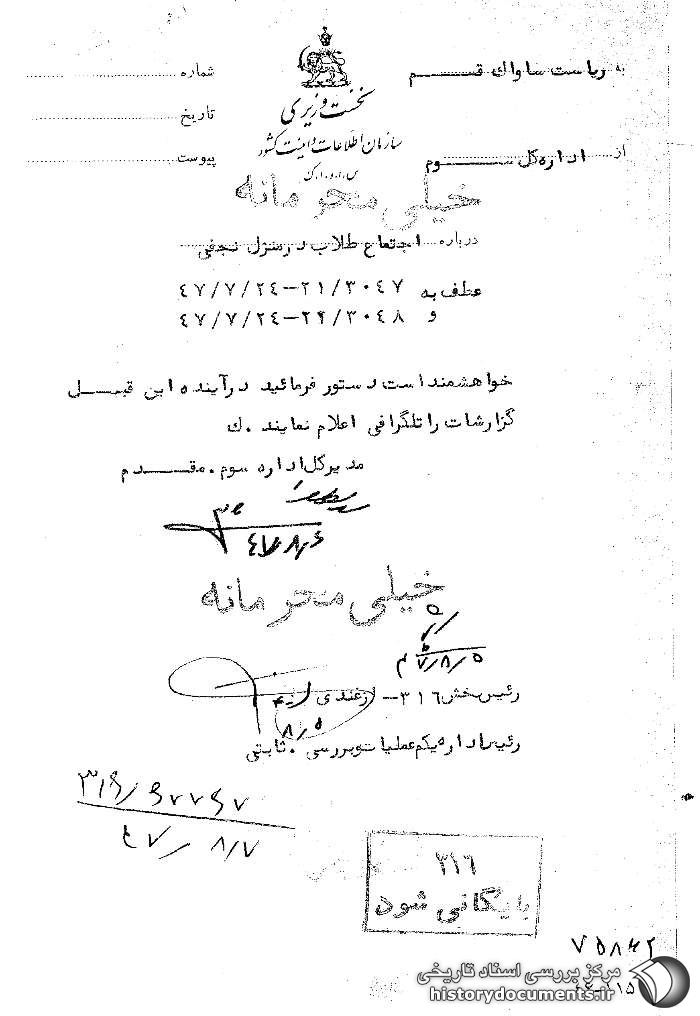 به ریاست ساواک قم
شماره
نخست وزیری
تاریخ
سازمان اطلاعات و امنیت کشور
س.ا.و.ا.ک
از اداره کل سوم
پیوست
خیلی محرمانه
درباره اجتماع طلاب در منزل نجفی
عطف به ۲۱/۳۰۴۷-۴۷/۷/۲۴
و ۲۱/۳۰۴۸-۴۷/۷/۲۴
خواهشمند است دستور فرمائید در آینده این قبیل
گزارشات را تلگرافی اعلام نمایند . ک
مدیر کل اداره سوم . مقدم
۴۷/۸/۶
خیلی محرمانه
۴۷/۸/۵
رئیس بخش ۳۱۶ - ازغندی
۸/۵
رئیس اداره یکم عملیات و بررسی . ثابتی
۴۷/۸/۷
۳۱۶
بایگانی شود
۷۵۸۴۲
مرکز بررسی اسناد تاریخی
historydocuments.ir